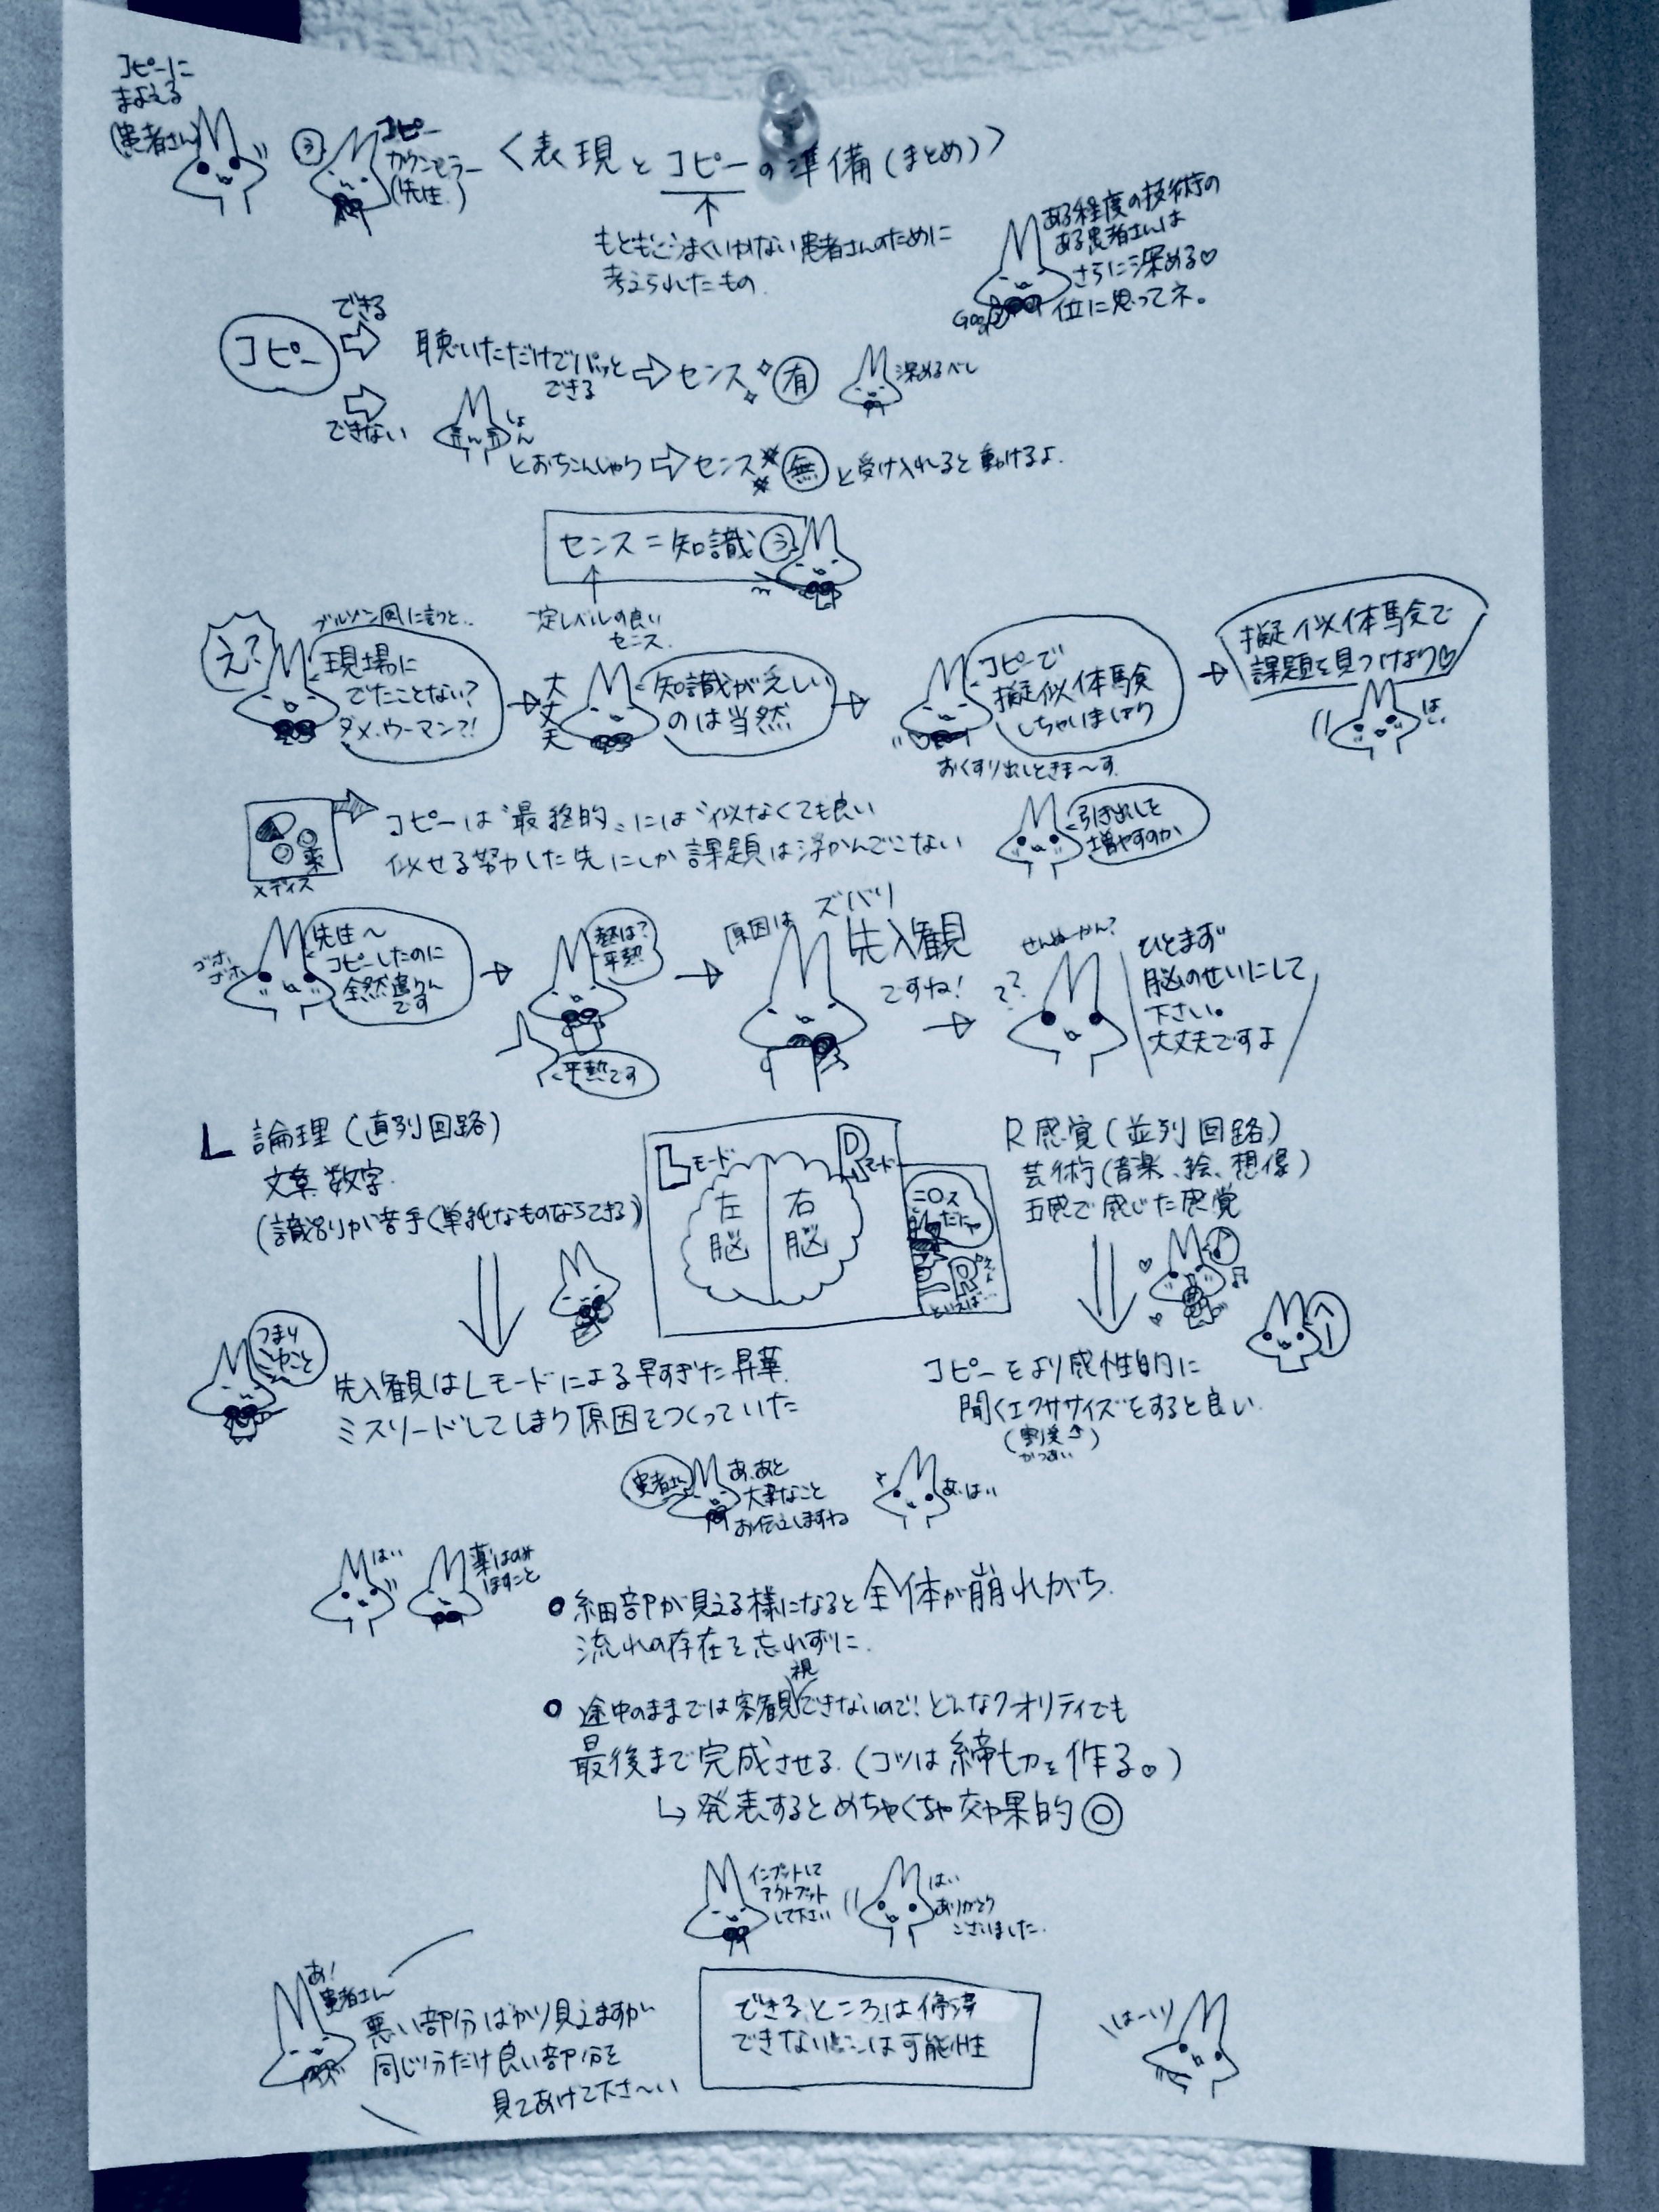 コピーに
まよえる
(患者さん)
う
コピー
カウンセラー
(先生)
〈表現とコピーの準備(まとめ)〉
もともとうまくいかない患者さんのために
考えられたもの
ある程度の技術の
ある患者さんは
さらに深める♡
位に思ってネ。
コピー
できる
聴いただけでパッと
できる
センス
有
深めるべし
できない
しょん
とおちこんじゃう
センス
無
と受け入れると動けるよ
センス=知識
う
一定レベルの良い
センス
え?
ブルゾン風に言うと..
現場に
でたことない?
ダメ.ウーマン?!
大丈夫
知識が乏しい
のは当然
コピーで
擬似体験
しちゃいましょう
おくすり出しときま〜す
擬似体験で
課題を見つけよう♡
はい
薬
メディス
コピーは"最終的"には"似なくても良い
似せる努力した先にしか課題は浮かんでこない
引き出しを
増やすのか
ゴホ
ゴホ
先生〜
コピーしたのに
全然違うん
です
熱は?
平熱
平熱です
原因は
ズバリ
先入観
ですね!
せんぬーかん?
??
ひとまず
脳のせいにして
下さい。
大丈夫ですよ
L 論理(直列回路)
文章.数字
(識別が苦手(単純なものならできる)
Lモード
Rモード
左脳
右脳
といえば…
R感覚(並列回路)
芸術(音楽、絵、想像)
五感で感じた感覚
つまり
こゆこと
先入観はLモードによる早すぎた昇華
ミスリードしてしまう原因をつくっていた
コピーをより感性的に
聞くエクササイズをすると良い
患者さん
あ、あと
大事なこと
お伝えしますね
あ、はい
はい
薬はのみ
ほすこと
細部が見える様になると全体が崩れがち.
流れの存在を忘れずに.
途中のままでは客観視できないので!どんなクオリティでも
最後まで完成させる.(コツは締切を作る♡)
発表するとめちゃくちゃ効果的◎
インプットして
アウトプット
して下さい
はい
ありがとう
ございました.
あ!
患者さん
悪い部分ばかり見えますが
同じ分だけ良い部分を
見てあげて下さ〜い
できるところは修済
できないところは可能性
はーい